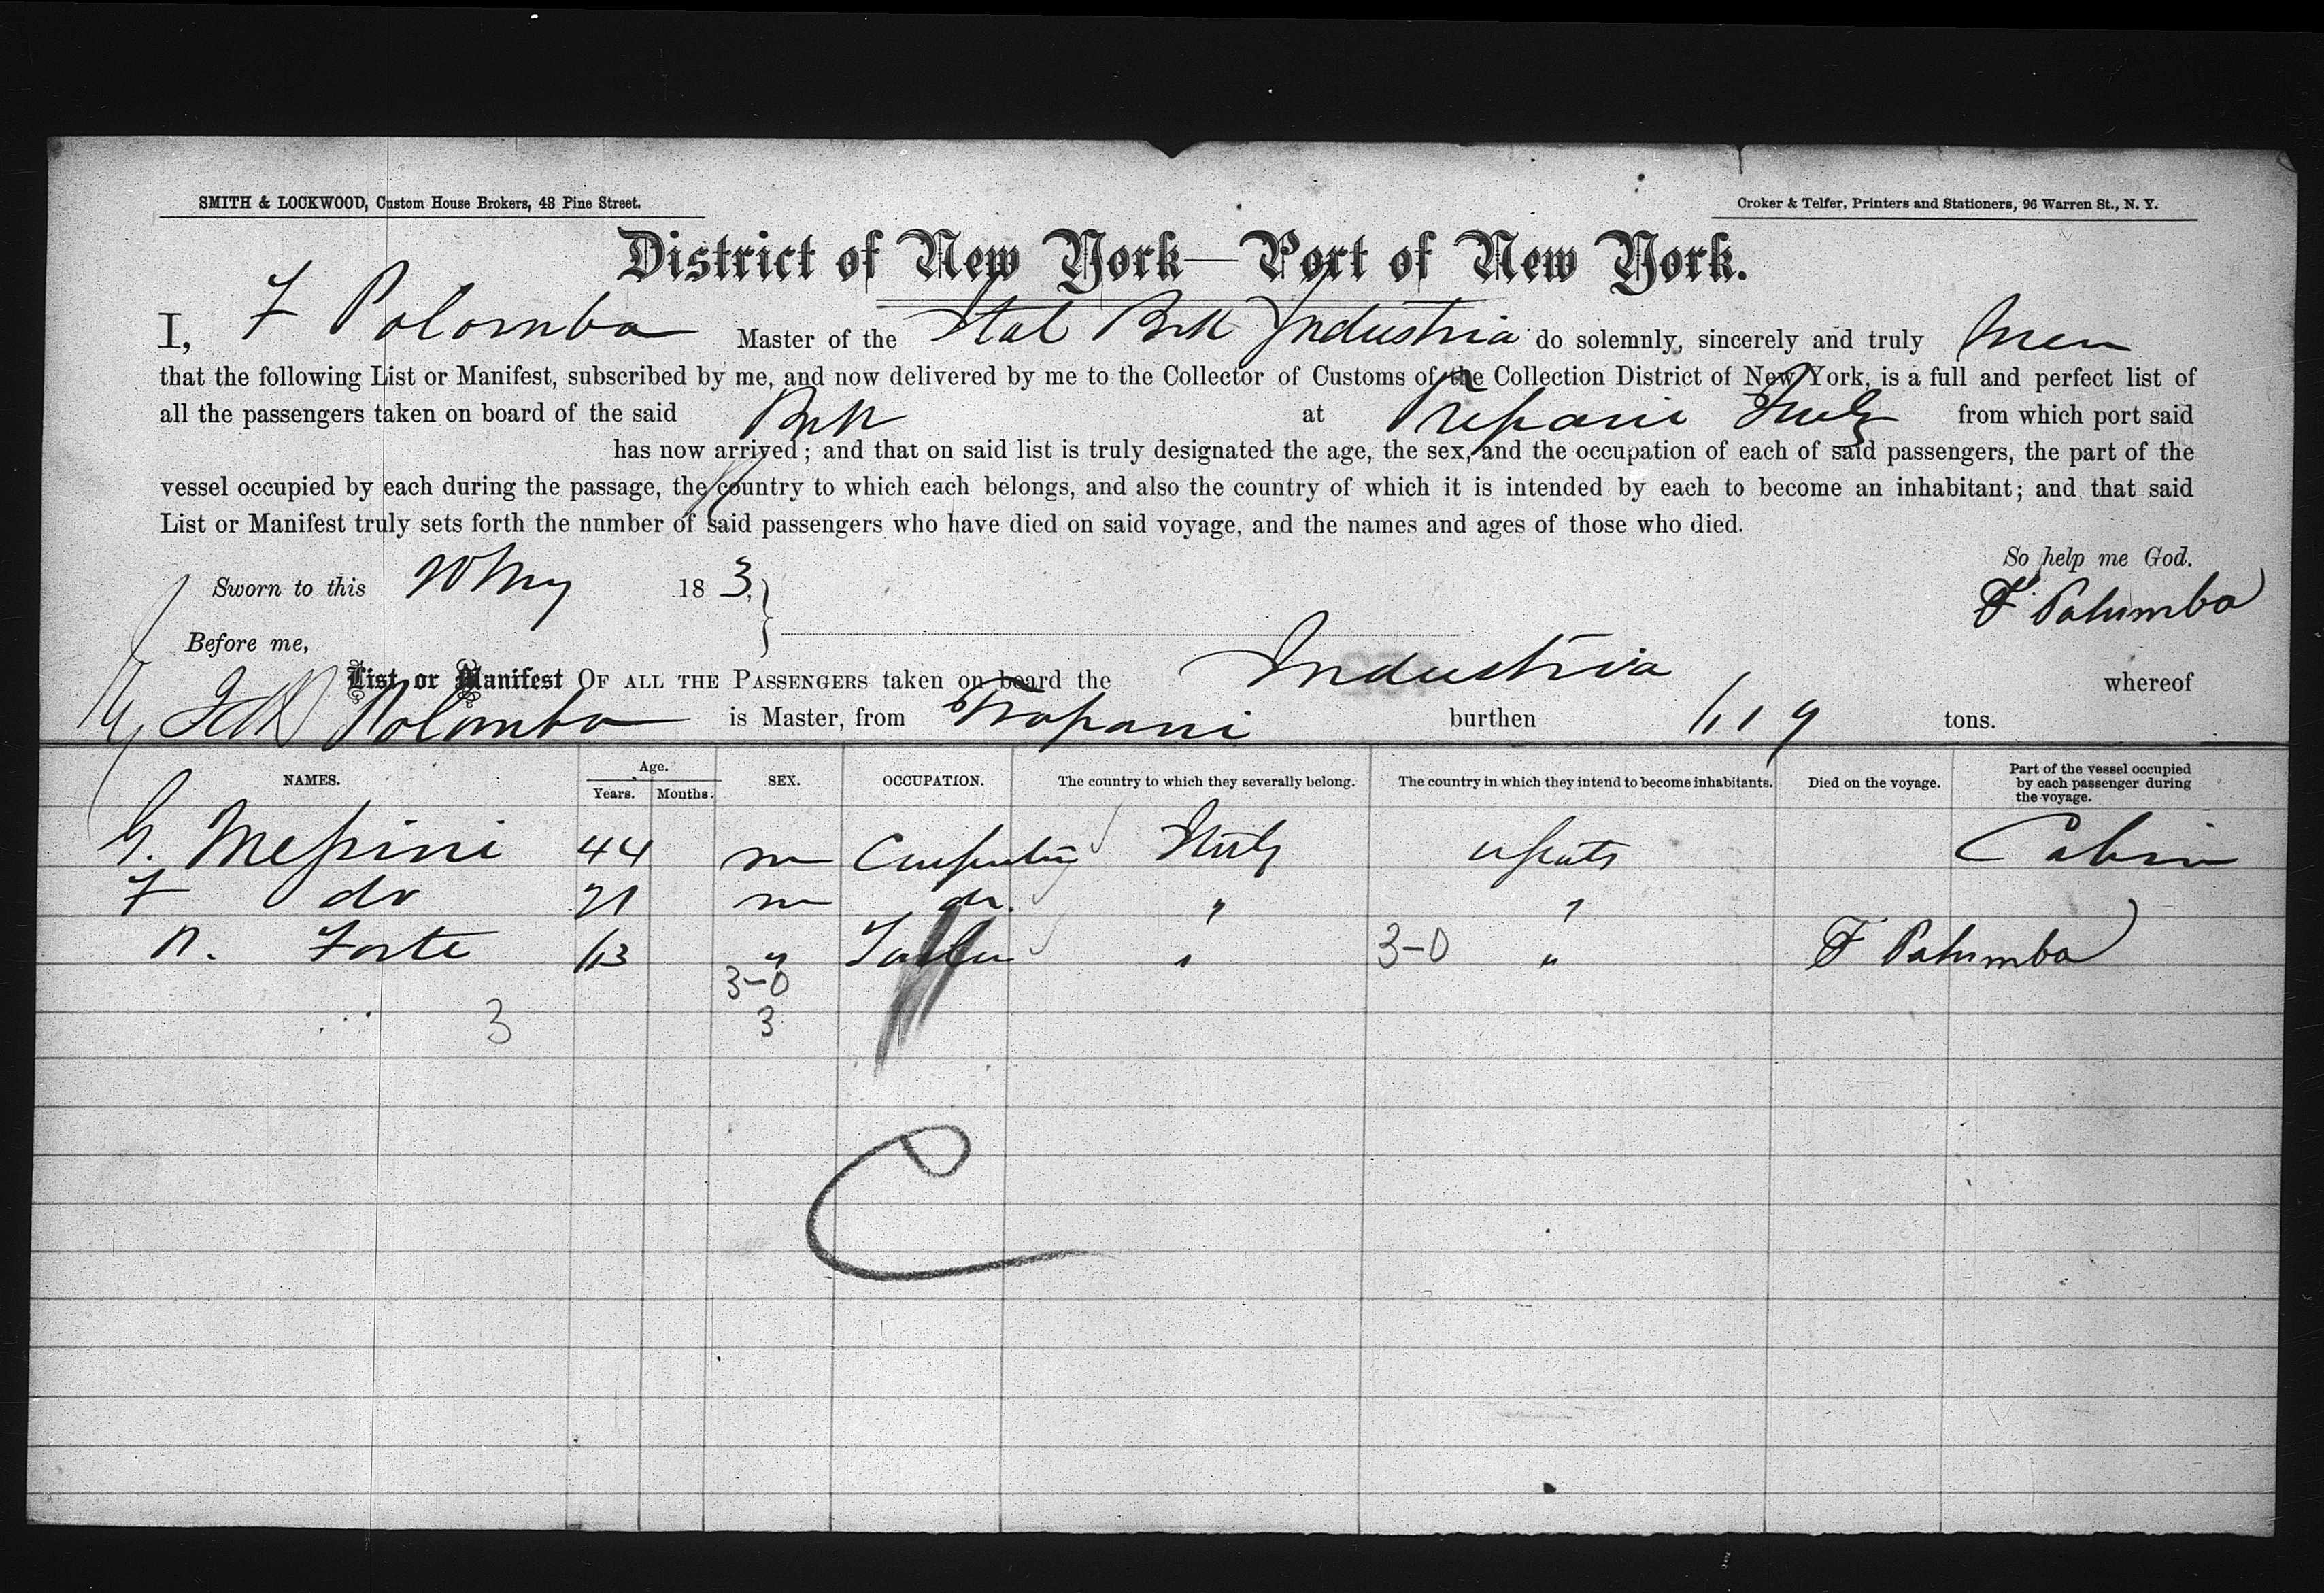 SMITH & LOCKWOOD, Custom House Brokers, 48 Pine Street.
Croker & Telfer, Printers and Stationers, 96 Warren St., N. Y.
District of New York—Port of New York.
I, F Polomba Master of the Ital Brk Industria do solemnly, sincerely and truly
that the following List or Manifest, subscribed by me, and now delivered by me to the Collector of Customs of the Collection District of New York, is a full and perfect list of
all the passengers taken on board of the said Brk at Trepani Italy from which port said
has now arrived; and that on said list is truly designated the age, the sex, and the occupation of each of said passengers, the part of the
vessel occupied by each during the passage, the country to which each belongs, and also the country of which it is intended by each to become an inhabitant; and that said
List or Manifest truly sets forth the number of said passengers who have died on said voyage, and the names and ages of those who died.
So help me God.
Sworn to this 20 My 18 3, F. Palumbo
Before me,
List or Manifest OF ALL THE PASSENGERS taken on board the Industria whereof
Polomba is Master, from Trapani burthen 1119 tons.
NAMES. Age. Years. Months. SEX. OCCUPATION. The country to which they severally belong. The country in which they intend to become inhabitants. Died on the voyage. Part of the vessel occupied by each passenger during the voyage.
G. Messini 44 m Carpenter Italy UStats Cabin
F do 21 m do. " "
n. Forte 13 " " 3-0 " F Palumbo
3-0
3 3
C